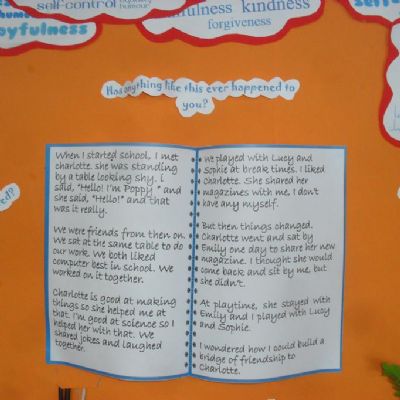 self-control
humour
joyfulness
kindness
forgiveness
Has anything like this ever happened to
you?
When I started school, I met
charlotte. She was standing
by a table looking shy. I
said, "Hello! I'm Poppy " and
she said, "Hello!" and that
was it really.
We were friends from then on.
We sat at the same table to do
our work. We both liked
computer best in school. We
worked on it together.
Charlotte is good at making
things so she helped me at
that. I'm good at science so I
helped her with that. We
shared jokes and laughed
together.
We played with Lucy and
Sophie at break times. I liked
Charlotte. She shared her
magazines with me. I don't
have any myself.
But then things changed.
Charlotte went and sat by
Emily one day to share her new
magazine. I thought she would
come back and sit by me, but
she didn't.
At playtime, she stayed with
Emily and I played with Lucy
and Sophie.
I wondered how I could build a
bridge of friendship to
Charlotte.